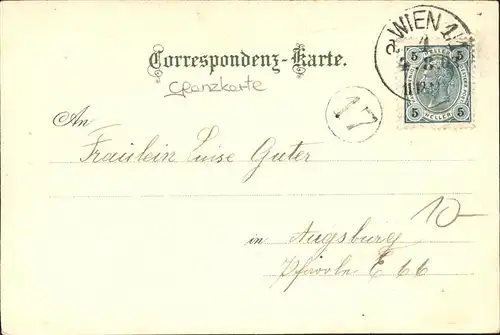 WIEN 1/1
Correspondenz-Karte.
Glanzkarte
5 5
HELLER
5 5
17
An
Fräulein Luise Guter
10-
in Augsburg
E 66